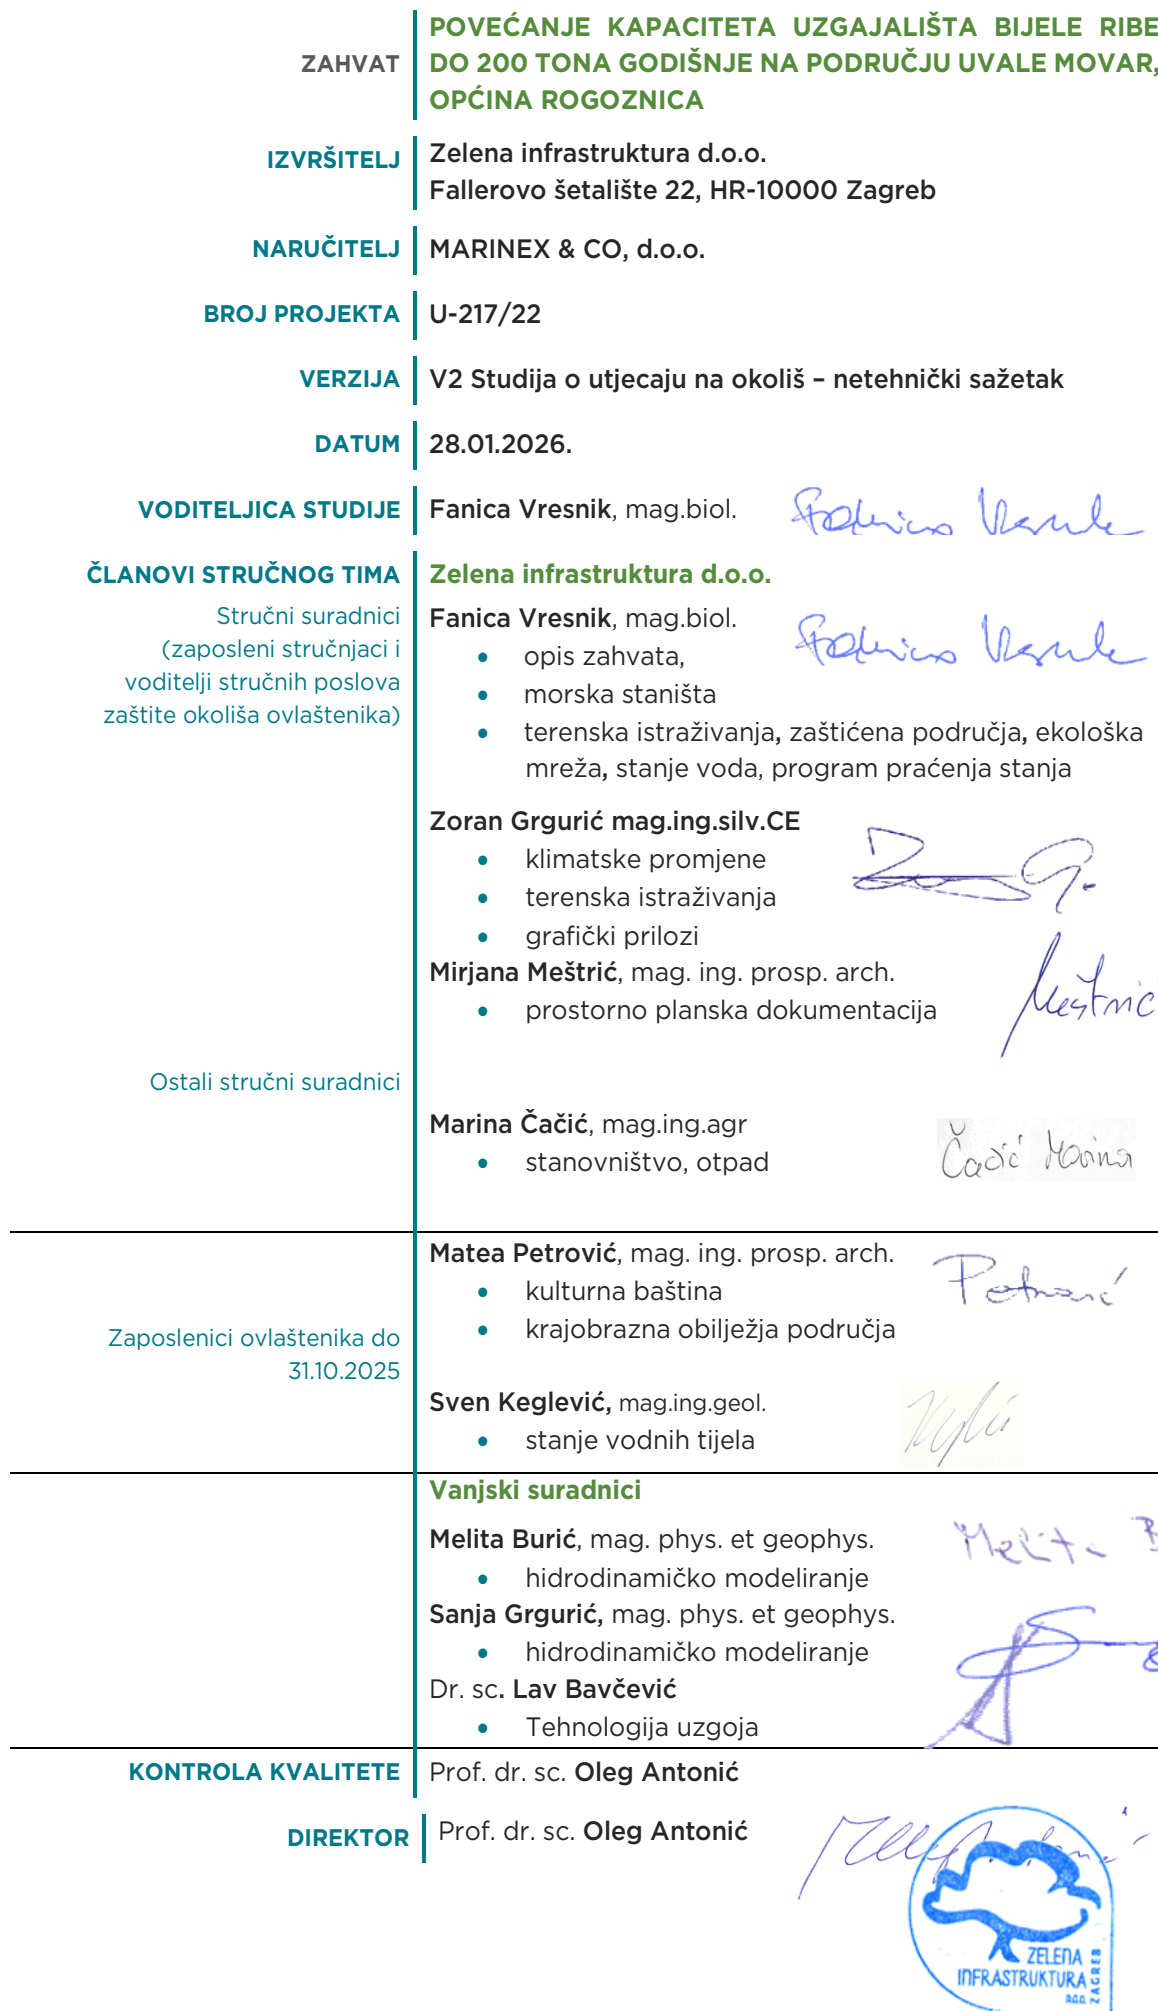 ZAHVAT
POVEĆANJE KAPACITETA UZGAJALIŠTA BIJELE RIBE
DO 200 TONA GODIŠNJE NA PODRUČJU UVALE MOVAR,
OPĆINA ROGOZNICA
IZVRŠITELJ
Zelena infrastruktura d.o.o.
Fallerovo šetalište 22, HR-10000 Zagreb
NARUČITELJ
MARINEX & CO, d.o.o.
BROJ PROJEKTA
U-217/22
VERZIJA
V2 Studija o utjecaju na okoliš – netehnički sažetak
DATUM
28.01.2026.
VODITELJICA STUDIJE
Fanica Vresnik, mag.biol.
ČLANOVI STRUČNOG TIMA
Stručni suradnici
(zaposleni stručnjaci i
voditelji stručnih poslova
zaštite okoliša ovlaštenika)
Zelena infrastruktura d.o.o.
Fanica Vresnik, mag.biol.
• opis zahvata,
• morska staništa
• terenska istraživanja, zaštićena područja, ekološka
mreža, stanje voda, program praćenja stanja
Zoran Grgurić mag.ing.silv.CE
• klimatske promjene
• terenska istraživanja
• grafički prilozi
Mirjana Meštrić, mag. ing. prosp. arch.
Meštrić
• prostorno planska dokumentacija
Ostali stručni suradnici
Marina Čačić, mag.ing.agr
Čačić Marina
• stanovništvo, otpad
Zaposlenici ovlaštenika do
31.10.2025
Matea Petrović, mag. ing. prosp. arch.
Petrović
• kulturna baština
• krajobrazna obilježja područja
Sven Keglević, mag.ing.geol.
• stanje vodnih tijela
Vanjski suradnici
Melita Burić, mag. phys. et geophys.
Melita B
• hidrodinamičko modeliranje
Sanja Grgurić, mag. phys. et geophys.
• hidrodinamičko modeliranje
Dr. sc. Lav Bavčević
• Tehnologija uzgoja
KONTROLA KVALITETE
Prof. dr. sc. Oleg Antonić
DIREKTOR
Prof. dr. sc. Oleg Antonić
ZELENA
INFRASTRUKTURA
D.O.O.
ZAGREB